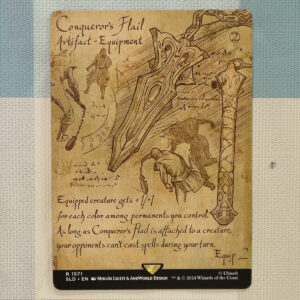 Conqueror's Flail
Artifact - Equipment
2
Equipped creature gets +1/+1
for each color among permanents you control.
As long as Conqueror's Flail is attached to a creature,
your opponents can't cast spells during your turn.
Equip 2
R 1571
SLD • EN Miklós Ligeti & ArtWorld Design
© Ubisoft
™ & © 2024 Wizards of the Coast